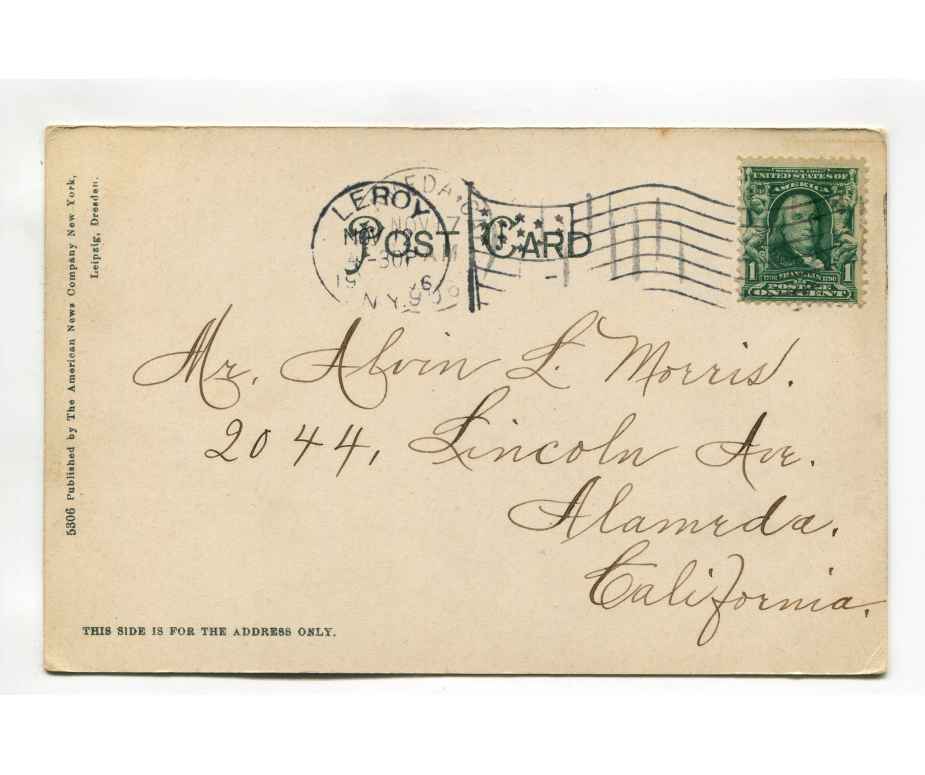 5306 Published by The American News Company New York,
Leipzig, Dresden.
LEROY
NOV
N.Y.
EDA,
NOV 17
POST CARD
UNITED STATES OF
AMERICA
1 FRANKLIN 1
POSTAGE
ONE CENT
Mr. Alvin L. Morris.
2044, Lincoln Ave.
Alameda.
California.
THIS SIDE IS FOR THE ADDRESS ONLY.